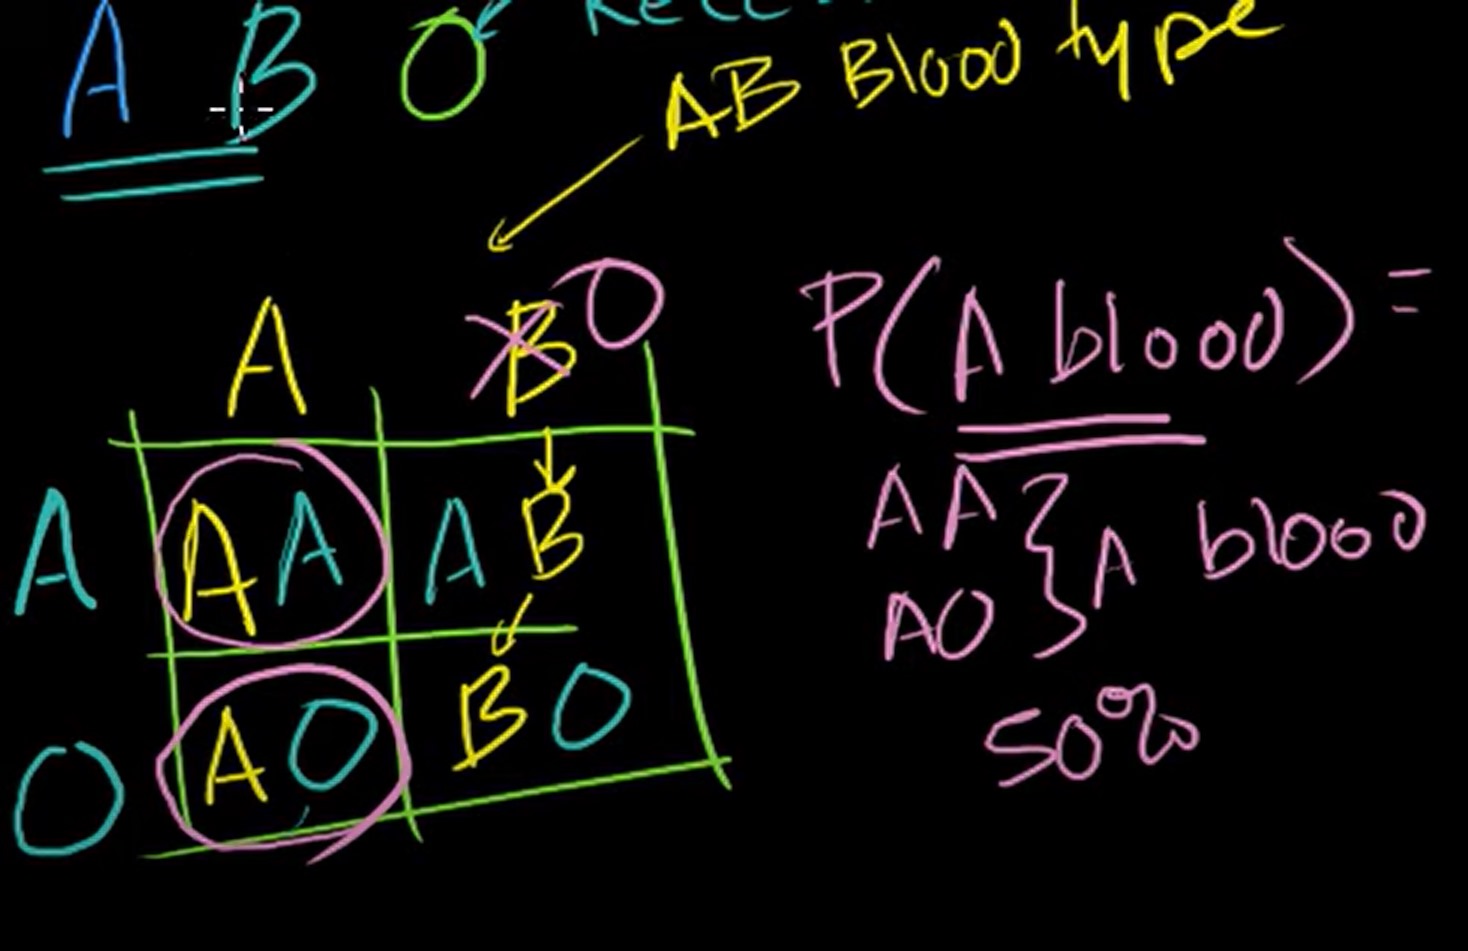 A B O
AB Blood type
A B O
P(A blood) =
A AA AB
AA } A blood
AO
O AO BO
50%